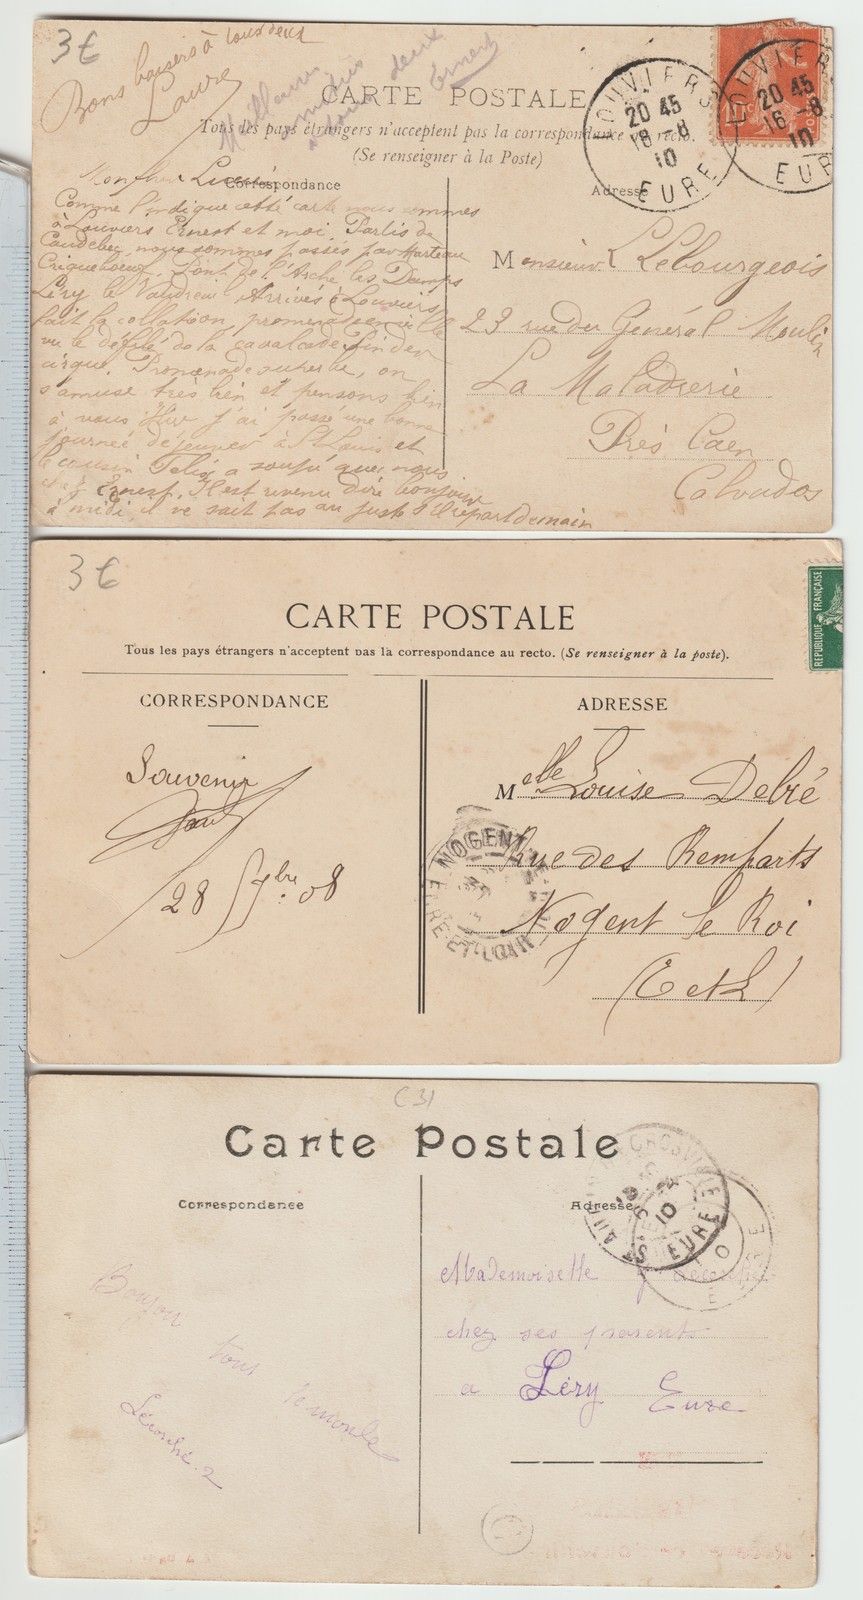 3 €
Bons baisers à tous deux
Laure
Meilleures
amitiés
à tous deux
Ernest
CARTE POSTALE
Tous les pays étrangers n'acceptent pas la correspondance au recto.
(Se renseigner à la Poste)
Correspondance
Adresse
LOUVIERS
20 45
16 -8
10
EURE
LOUVIERS
20 45
16 -8
10
EURE
Mon cher Lucien
Comme l'indique cette carte nous sommes
à Louviers Ernest et moi. Partis de
Caudebec, nous sommes passés par Marteau
Criqueboeuf, Pont de l'Arche les Damps
Léry le Vaudreuil Arrivés à Louviers
fait la collation, promenade en ville
vu le défilé de la cavalcade
cirque. Promenade superbe, on
s'amuse très bien et pensons bien
à vous. Hier j'ai passé une bonne
journée déjeuner à St Louis et
le cousin Félix a soupé avec nous
chez Ernest. Il est revenu dire bonjour
à midi il ne sait pas au juste s'il repart demain
Monsieur L Lebourgeois
29 rue du Général Moulin
La Maladrerie
Près Caen
Calvados
3 €
CARTE POSTALE
Tous les pays étrangers n'acceptent pas la correspondance au recto. (Se renseigner à la poste).
REPUBLIQUE FRANÇAISE
CORRESPONDANCE
ADRESSE
Souvenir
28 7bre 08
Melle Louise Debré
Rue des Remparts
Nogent le Roi
(E et L)
NOGENT
EURE-ET-LOIR
C31
Carte Postale
Correspondance
Adresse
10
EURE
Bonjour
tous
le monde
Mademoiselle
chez ses parents
a Léry Eure